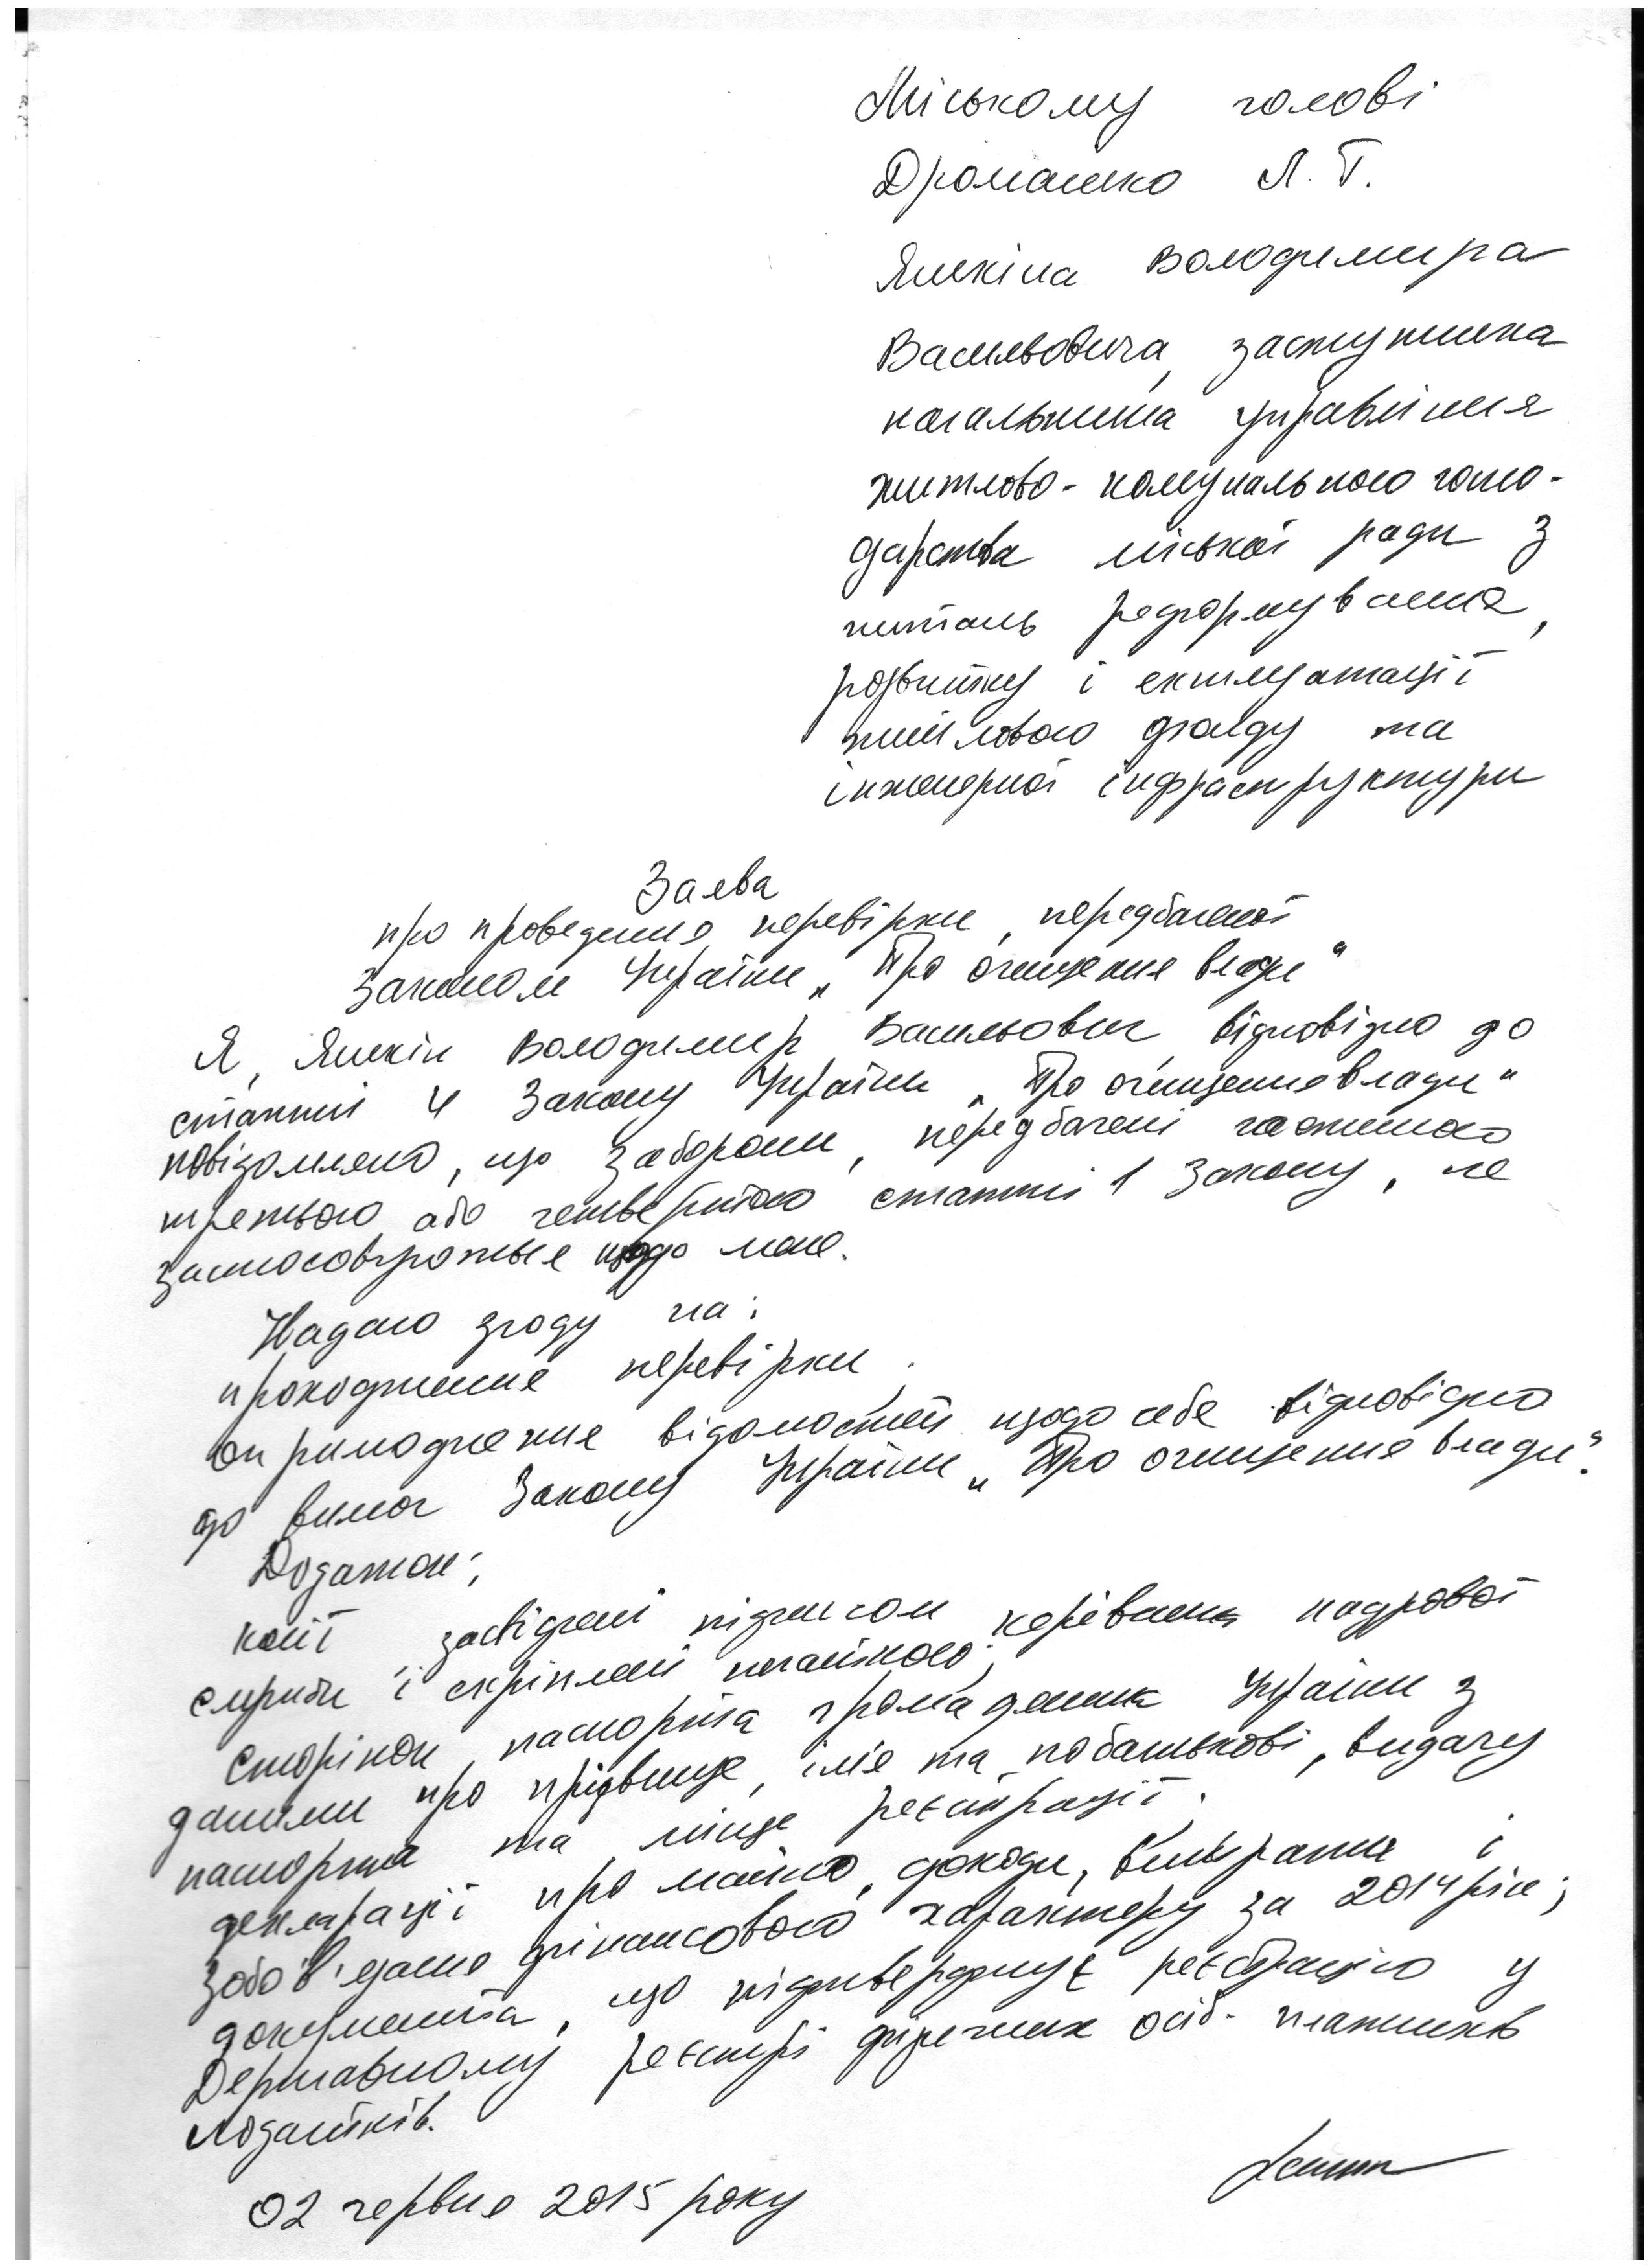 Міському голові
Дромашко Л. Г.
Яшкіна Володимира
Васильовича, заступника
начальника управління
житлово-комунального госпо-
дарства міської ради з
питань реформування,
розвитку і експлуатації
житлового фонду та
інженерної інфраструктури
Заява
про проведення перевірки, передбаченої
Законом України „Про очищення влади"
Я, Яшкін Володимир Васильович, відповідно до
статті 4 Закону України „Про очищення влади"
повідомляю, що заборони, передбачені частиною
третьою або четвертою статті 1 Закону, не
застосовуються щодо мене.
Надаю згоду на:
проходження перевірки
оприлюднення відомостей щодо себе відповідно
до вимог Закону України „Про очищення влади".
Додаток:
копії засвідчені підписом керівника кадрової
служби і скріплені печаткою:
сторінок паспорта громадянина України з
даними про прізвище, ім'я та по батькові, видачу
паспорта та місце реєстрації.
декларації про майно, доходи, витрати і
зобов'язання фінансового характеру за 2014 рік;
документа, що підтверджує реєстрацію у
Державному реєстрі фізичних осіб-платників
податків.
02 червня 2015 року